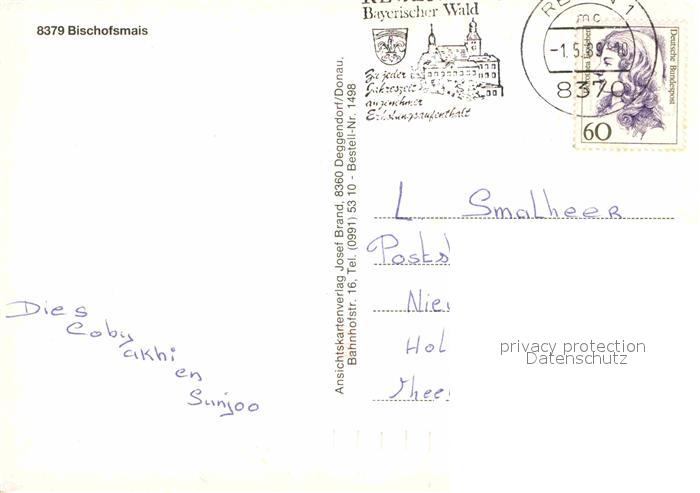 8379 Bischofsmais
Bayerischer Wald
Zu jeder
Jahreszeit
angenehmer
Erholungsaufenthalt
REGEN 1
mc
-1.5.89-10
8370
Deutsche Bundespost
60
Ansichtskartenverlag Josef Brand, 8360 Deggendorf/Donau,
Bahnhofstr. 16, Tel. (0991) 53 10 - Bestell-Nr. 1498
L. Smalheer
Posts
Nie
Hol
Dies
Coby
akhi
en
Sunjoo
privacy protection
Datenschutz